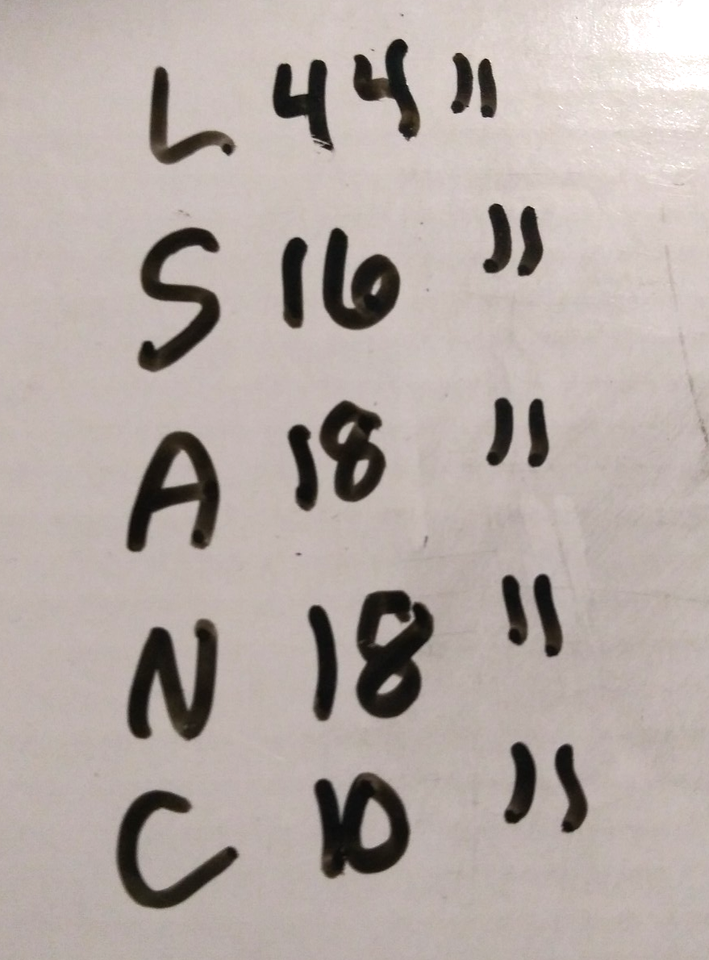 L 44"
S 16"
A 18"
N 18"
C 10"